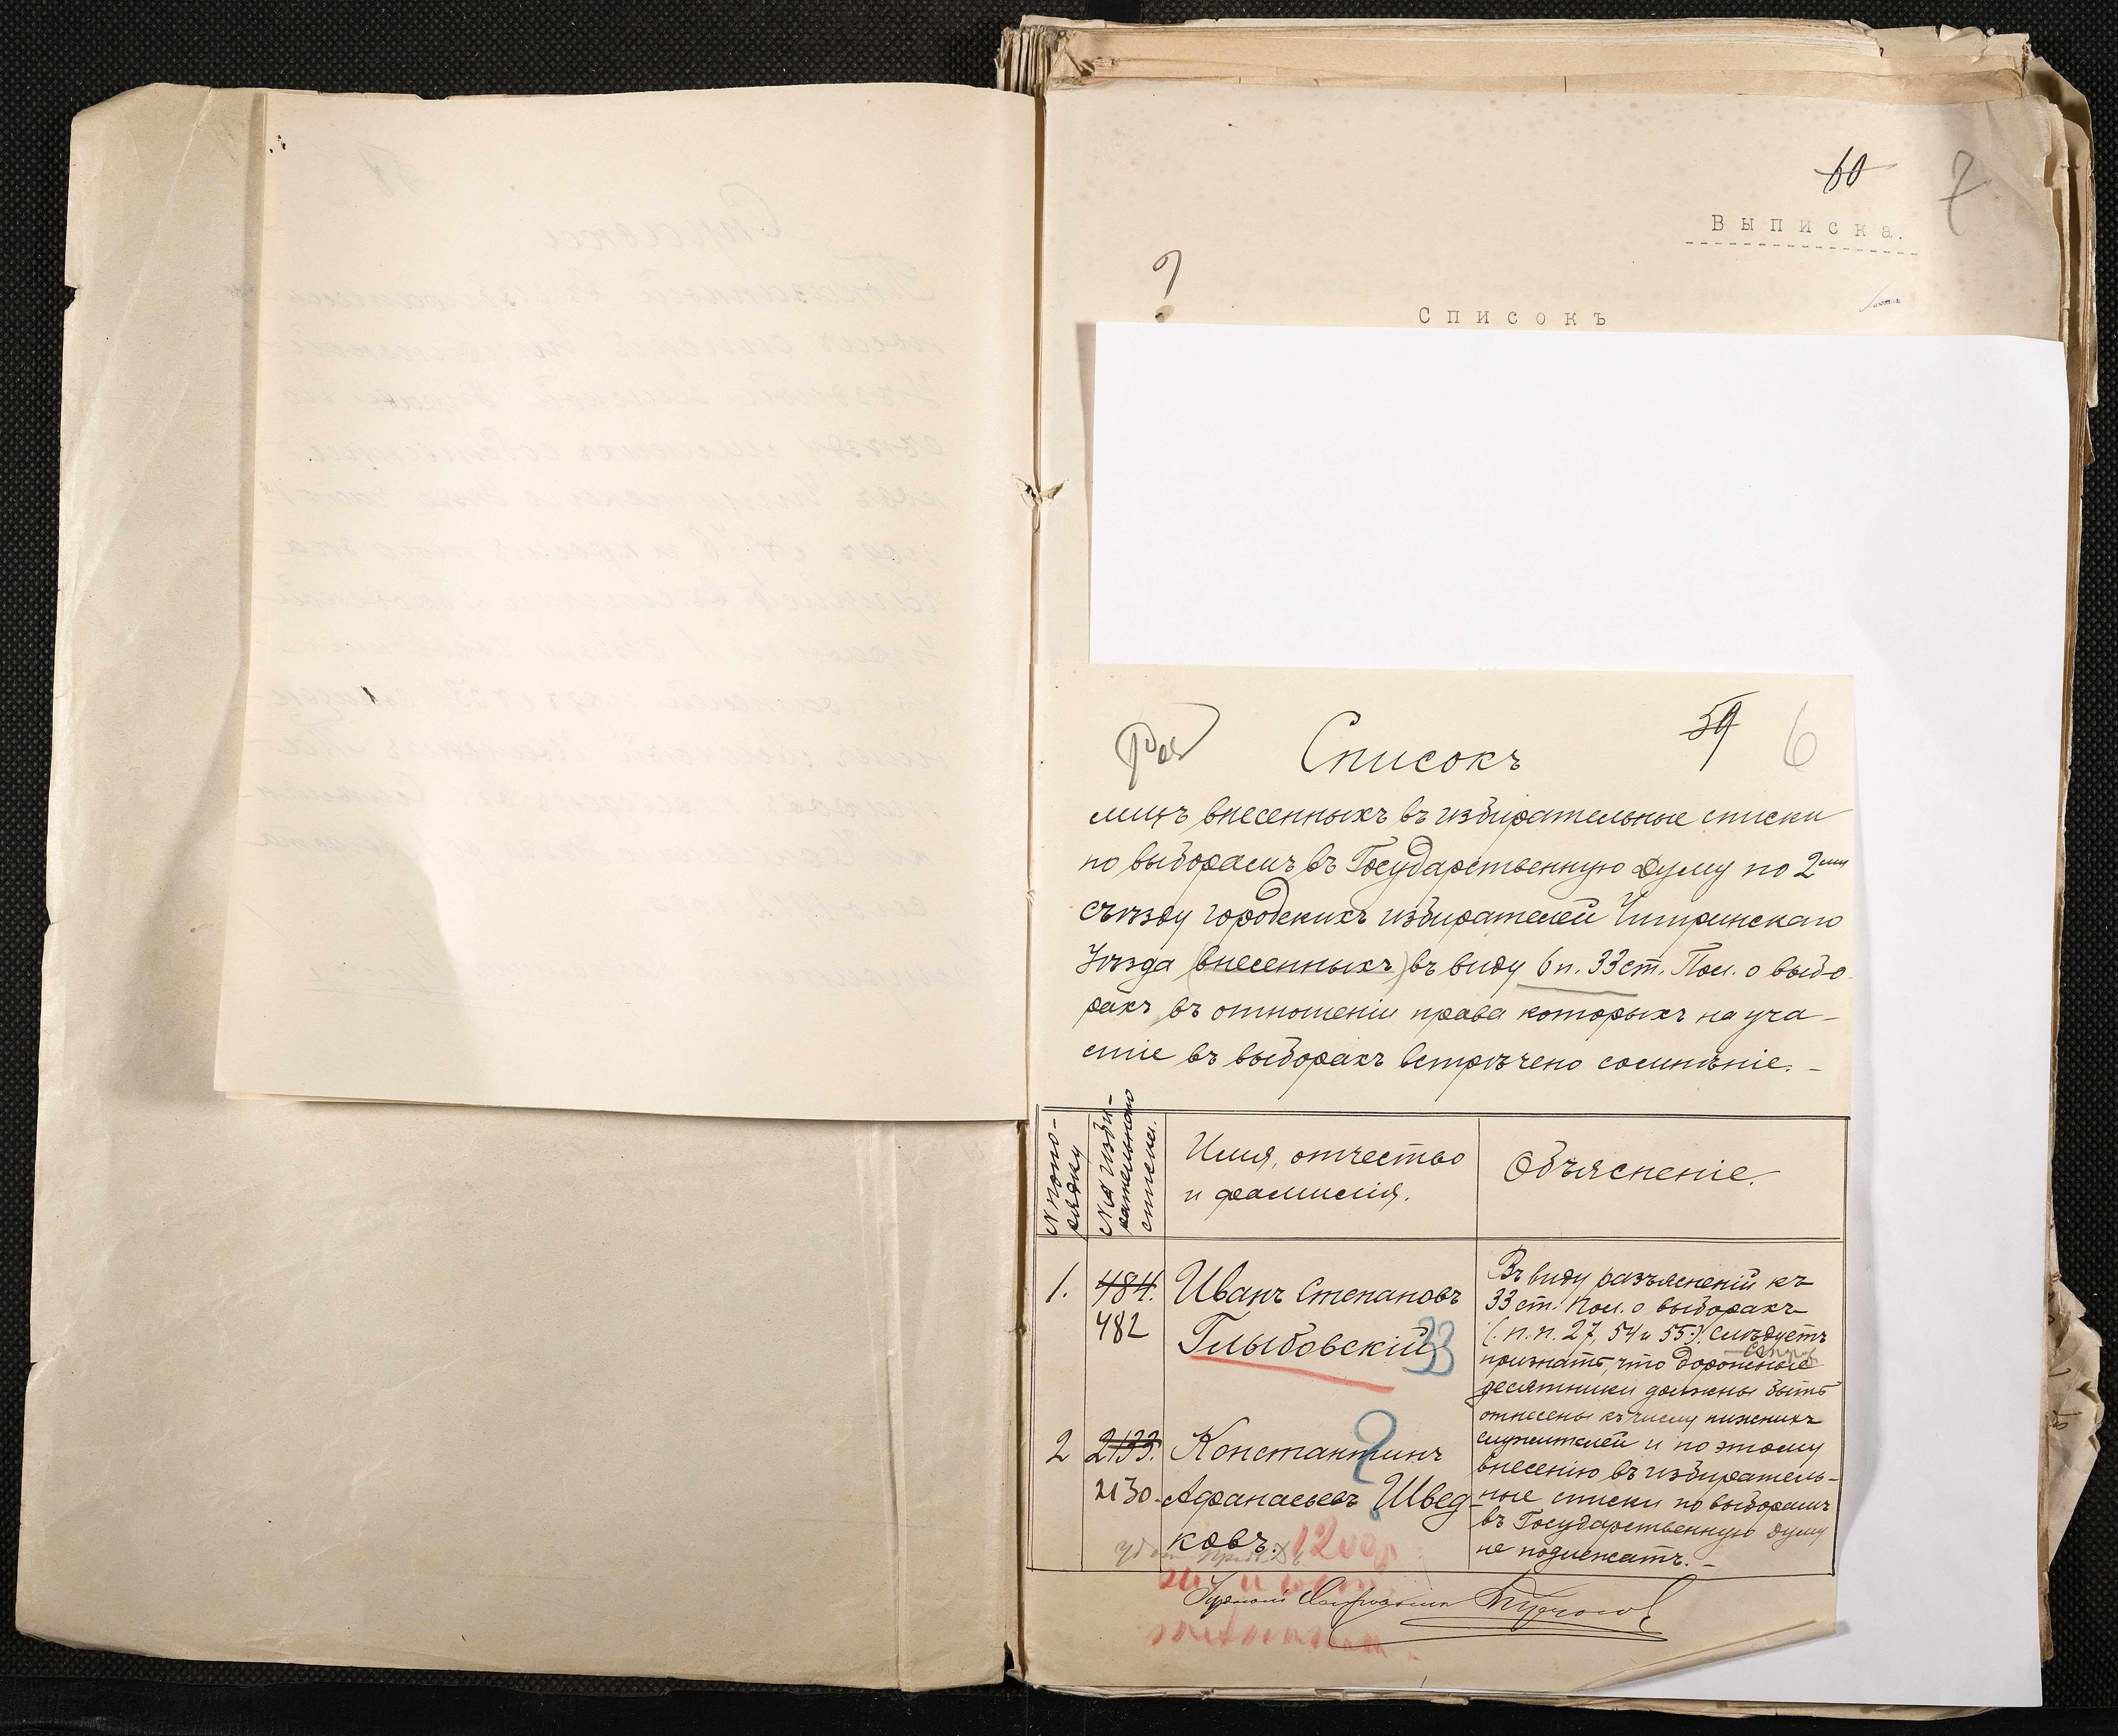 60
7
Выписка.
?
Списокъ
59
6
Списокъ
лицъ внесенныхъ въ избирательные списки
по выборамъ въ Государственную Думу по 2му
съѣзду городскихъ избирателей Читинскаго
Уѣзда (внесенныхъ) въ виду 6 п. 33 ст. Пол. о выбо-
рахъ въ отношеніи права которыхъ на уча-
стіе въ выборахъ встрѣчено сомнѣніе. -
№ по по-
рядку
№ изби-
рательнаго
списка.
Имя, отчество
и фамилія.
Объясненіе.
1.
484.
482
Иванъ Степановъ
Глыбовскій
33
2
2133.
2130.
Константинъ
Афанасьевъ Швед-
ковъ.
Въ виду разъясненій къ
33 ст. Пол. о выборахъ
(п.п. 27, 54 и 55) слѣдуетъ
признать, что дорожные
десятники должны быть
отнесены къ числу нижнихъ
служителей и по этому
внесенію въ избиратель-
ные списки по выборамъ
въ Государственную думу
не подлежатъ. -